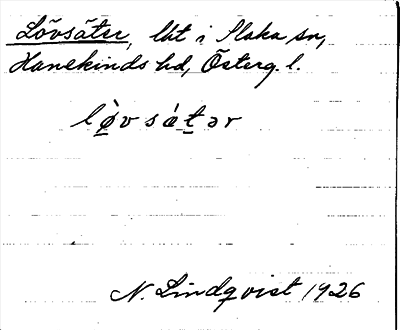 Lövsäter, lht i Slaka sn,
Hanekinds hd, Österg. l.
lø̠̀vsát̠ər
N. Lindqvist 1926